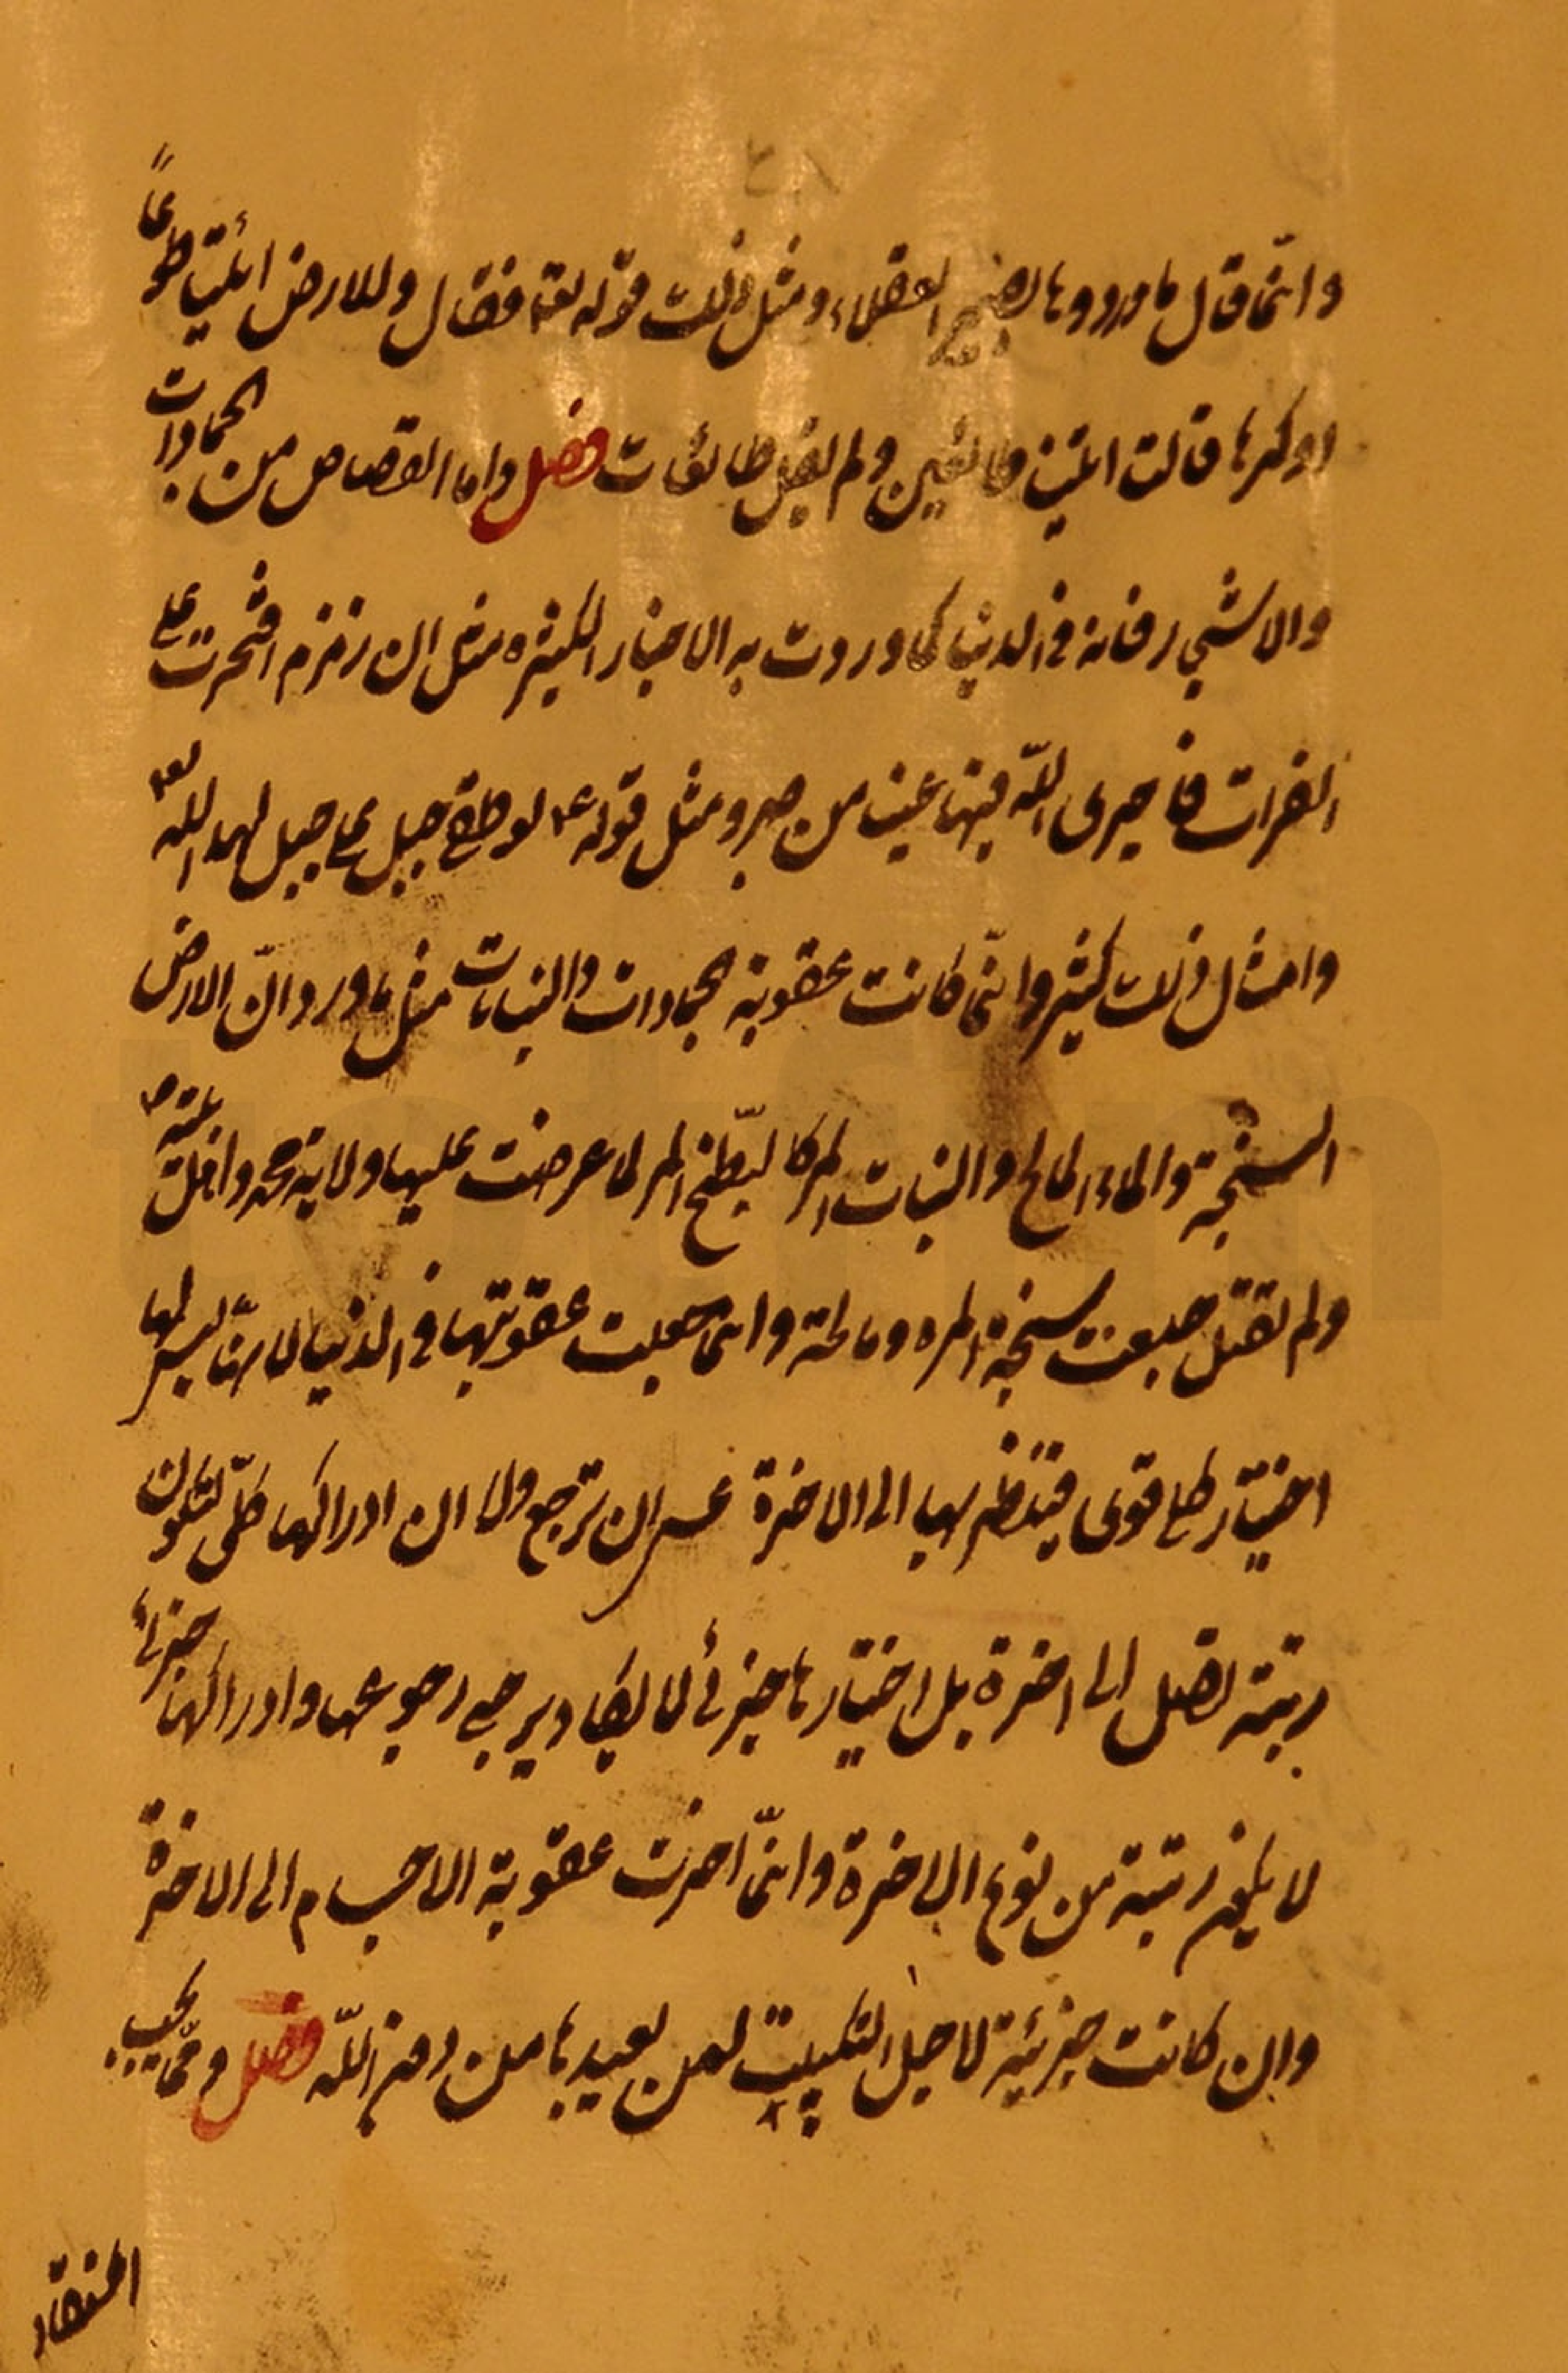 وانّما قال ما وردوها بضمير العقلاء ومثل ذلك قوله تعا فقال وللارض ائتيا طوعاً
اوكرها قالتا اتينا طائعين ولم يقل طائعات فصل واما القصاص من الجمادات
والاشجار فانه في الدنيا كما وردت به الاخبار الكثيره مثل ان زمزم افتخرت على
الفرات فاجرى الله فيها عينا من صبر ومثل قوله ع لو طغى جبل على جبل لهده الله تع
وامثال ذلك كثير وانّما كانت عقوبة الجمادات والنباتات مثل ما ورد انّ الارض
السبخة والماء المالح والنبات المر كالبطّيخ المر لما عرضت عليها ولاية محمد واهل بيته ص
ولم تقبل جعلت سبخة المره ومالحة وانّما جعلت عقوبتها في الدنيا لانهّا ليس لها
اختيار كلي قوى فينتظر بها الى الاخرة عسى ان ترجع ولا ان ادراكها كلّى لتكون
رتبته تصل الى اخرة بل اختيارها جزئى لا يكاد يرجى رجوعها وادراكها جزئى
لا يكون رتبته من نوع الاخرة وانّما اخرت عقوبة الاجسام الى الاخرة
وان كانت جزئية لاجل التكبيت لمن يعبدها من دون اللّه فصل وممّا يجب
اعتقاد